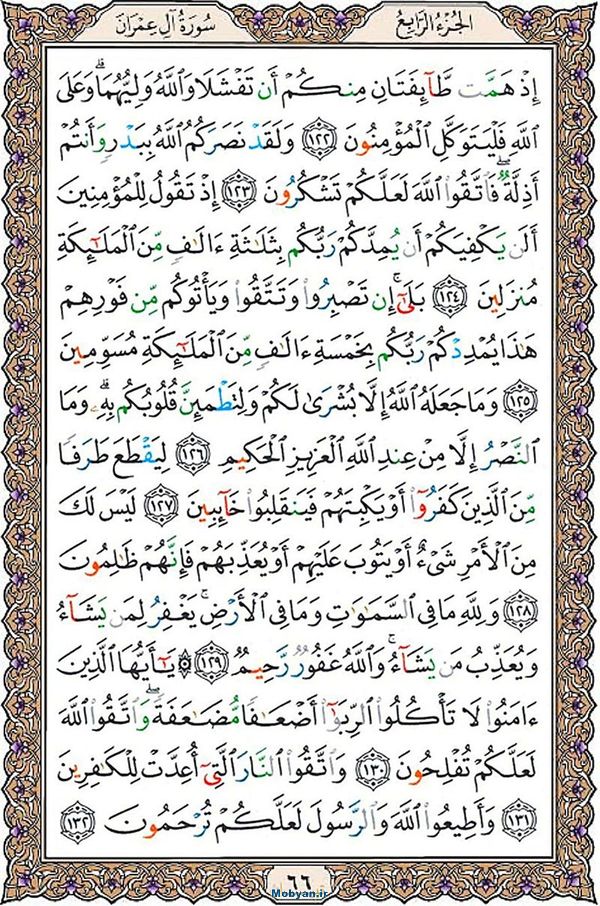 الجُزءُ الرَّابِعُ
سُورَةُ آلِ عِمْرَانَ
إِذْ هَمَّت طَّآئِفَتَانِ مِنكُمْ أَن تَفْشَلَا وَٱللَّهُ وَلِيُّهُمَا ۗ وَعَلَى
ٱللَّهِ فَلْيَتَوَكَّلِ ٱلْمُؤْمِنُونَ ١٢٢ وَلَقَدْ نَصَرَكُمُ ٱللَّهُ بِبَدْرٍ وَأَنتُمْ
أَذِلَّةٌ ۖ فَٱتَّقُوا۟ ٱللَّهَ لَعَلَّكُمْ تَشْكُرُونَ ١٢٣ إِذْ تَقُولُ لِلْمُؤْمِنِينَ
أَلَن يَكْفِيَكُمْ أَن يُمِدَّكُمْ رَبُّكُم بِثَلَـٰثَةِ ءَالَـٰفٍ مِّنَ ٱلْمَلَـٰٓئِكَةِ
مُنزَلِينَ ١٢٤ بَلَىٰٓ ۚ إِن تَصْبِرُوا۟ وَتَتَّقُوا۟ وَيَأْتُوكُم مِّن فَوْرِهِمْ
هَـٰذَا يُمْدِدْكُمْ رَبُّكُم بِخَمْسَةِ ءَالَـٰفٍ مِّنَ ٱلْمَلَـٰٓئِكَةِ مُسَوِّمِينَ
١٢٥ وَمَا جَعَلَهُ ٱللَّهُ إِلَّا بُشْرَىٰ لَكُمْ وَلِتَطْمَئِنَّ قُلُوبُكُم بِهِۦ ۗ وَمَا
ٱلنَّصْرُ إِلَّا مِنْ عِندِ ٱللَّهِ ٱلْعَزِيزِ ٱلْحَكِيمِ ١٢٦ لِيَقْطَعَ طَرَفًا
مِّنَ ٱلَّذِينَ كَفَرُوٓا۟ أَوْ يَكْبِتَهُمْ فَيَنقَلِبُوا۟ خَآئِبِينَ ١٢٧ لَيْسَ لَكَ
مِنَ ٱلْأَمْرِ شَىْءٌ أَوْ يَتُوبَ عَلَيْهِمْ أَوْ يُعَذِّبَهُمْ فَإِنَّهُمْ ظَـٰلِمُونَ
١٢٨ وَلِلَّهِ مَا فِى ٱلسَّمَـٰوَٰتِ وَمَا فِى ٱلْأَرْضِ ۚ يَغْفِرُ لِمَن يَشَآءُ
وَيُعَذِّبُ مَن يَشَآءُ ۚ وَٱللَّهُ غَفُورٌ رَّحِيمٌ ١٢٩ ۞ يَـٰٓأَيُّهَا ٱلَّذِينَ
ءَامَنُوا۟ لَا تَأْكُلُوا۟ ٱلرِّبَوٰٓا۟ أَضْعَـٰفًا مُّضَـٰعَفَةً ۖ وَٱتَّقُوا۟ ٱللَّهَ
لَعَلَّكُمْ تُفْلِحُونَ ١٣٠ وَٱتَّقُوا۟ ٱلنَّارَ ٱلَّتِىٓ أُعِدَّتْ لِلْكَـٰفِرِينَ
١٣١ وَأَطِيعُوا۟ ٱللَّهَ وَٱلرَّسُولَ لَعَلَّكُمْ تُرْحَمُونَ ١٣٢
٦٦
Mobyan.ir